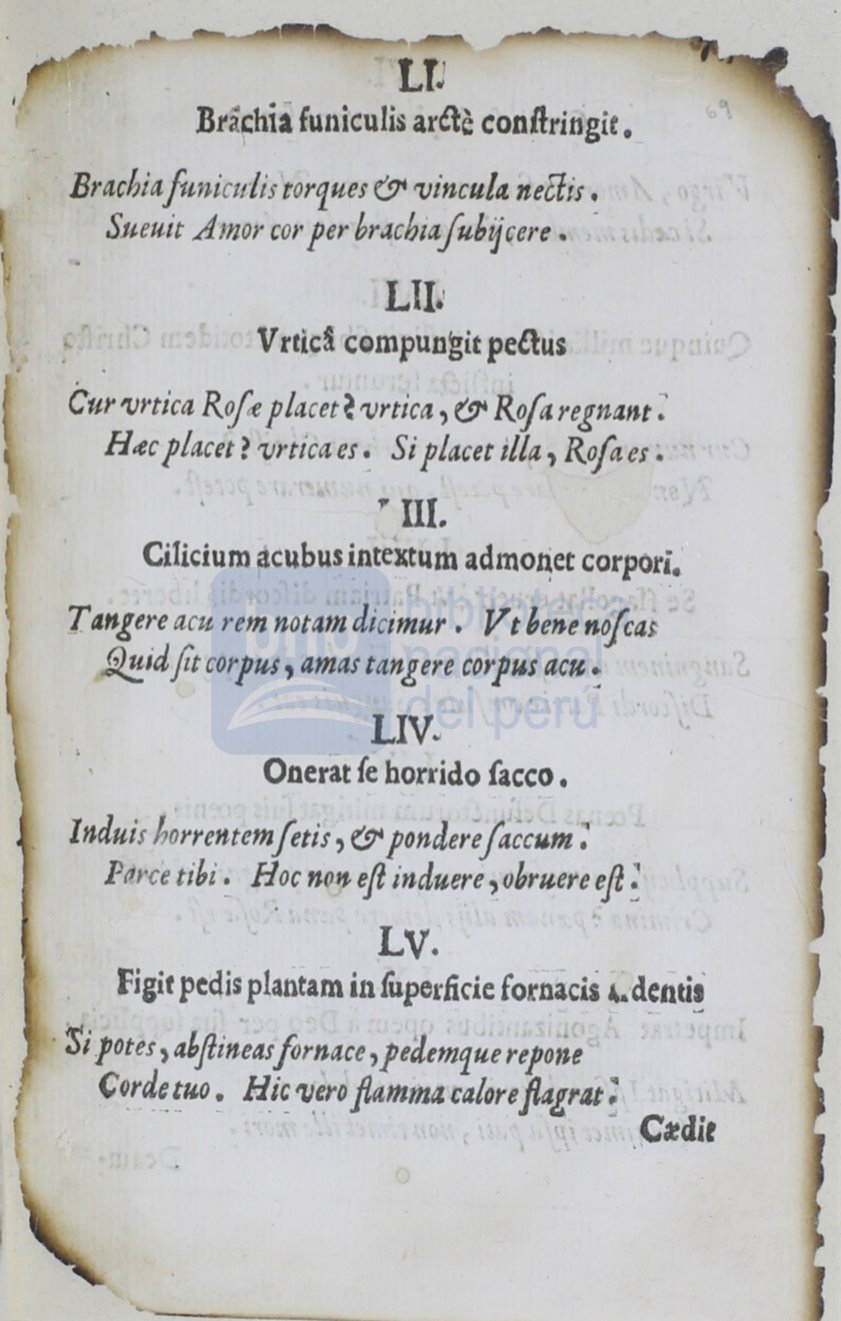 LI.
Brachia funiculis arctè conſtringit.
Brachia funiculis torques & vincula nectis.
Sueuit Amor cor per brachia ſubijcere.
LII.
Vrticâ compungit pectus
Cur vrtica Roſæ placet? vrtica, & Roſa regnant.
Hæc placet? vrtica es. Si placet illa, Roſa es.
III.
Cilicium acubus intextum admonet corpori.
Tangere acu rem notam dicimur. Vt bene noſcas
Quid ſit corpus, amas tangere corpus acu.
LIV.
Onerat ſe horrido ſacco.
Induis horrentem ſetis, & pondere ſaccum.
Parce tibi. Hoc non eſt induere, obruere eſt.
LV.
Figit pedis plantam in ſuperficie fornacis dentis
Si potes, abſtineas fornace, pedemque repone
Corde tuo. Hic vero flamma calore flagrat.
Cædit
biblioteca
nacional
del perú